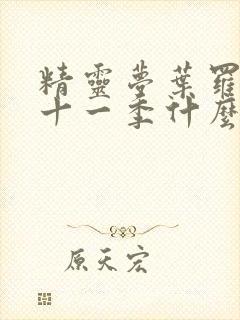 精靈夢葉羅
十一季什麼
原天宏